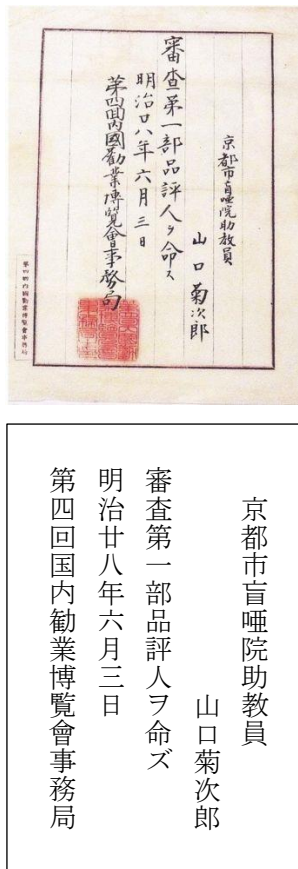 京都市盲唖院助教員
山口菊次郎
審査第一部品評人ヲ命ス
明治廿八年六月三日
第四回内國勸業博覧會事務局
第四回内國勸業博覽會事務局
京都市盲唖院助教員
山口菊次郎
審査第一部品評人ヲ命ズ
明治廿八年六月三日
第四回国内勧業博覧會事務局